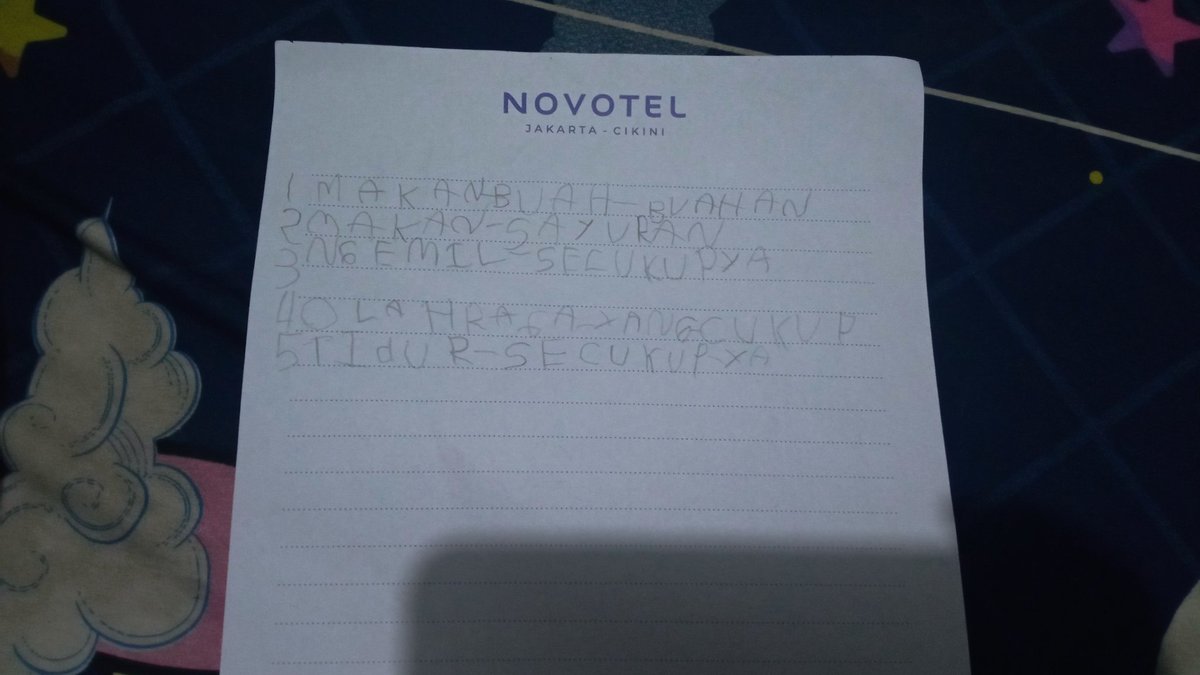 NOVOTEL
JAKARTA - CIKINI
1 MAKAN-BUAH-BUAHAN
2 MAKAN-SAYURAN
3 NGEMIL-SECUKUPYA
4 OLAHRAGA-YANGCUKUP
5 TIdUR-SECUKUP-YA